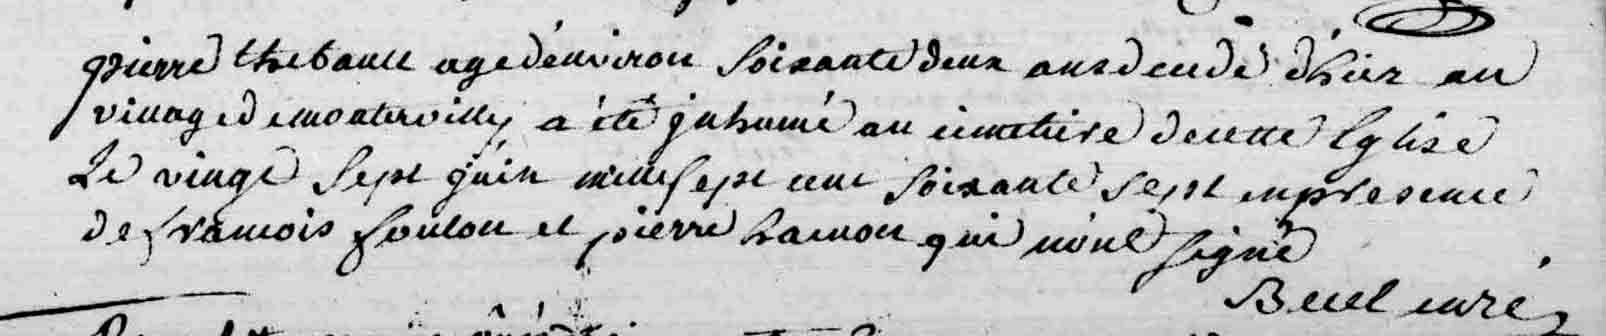 pierre thebault age d'environ soixante deux ans decedé d'hier au
village de monterville a été inhumé au cimetiere de cette Eglise
Le vingt sept juin mille sept cent soixante sept en presence
de francois foulon et pierre hamon qui n'ont signé
Becel curé